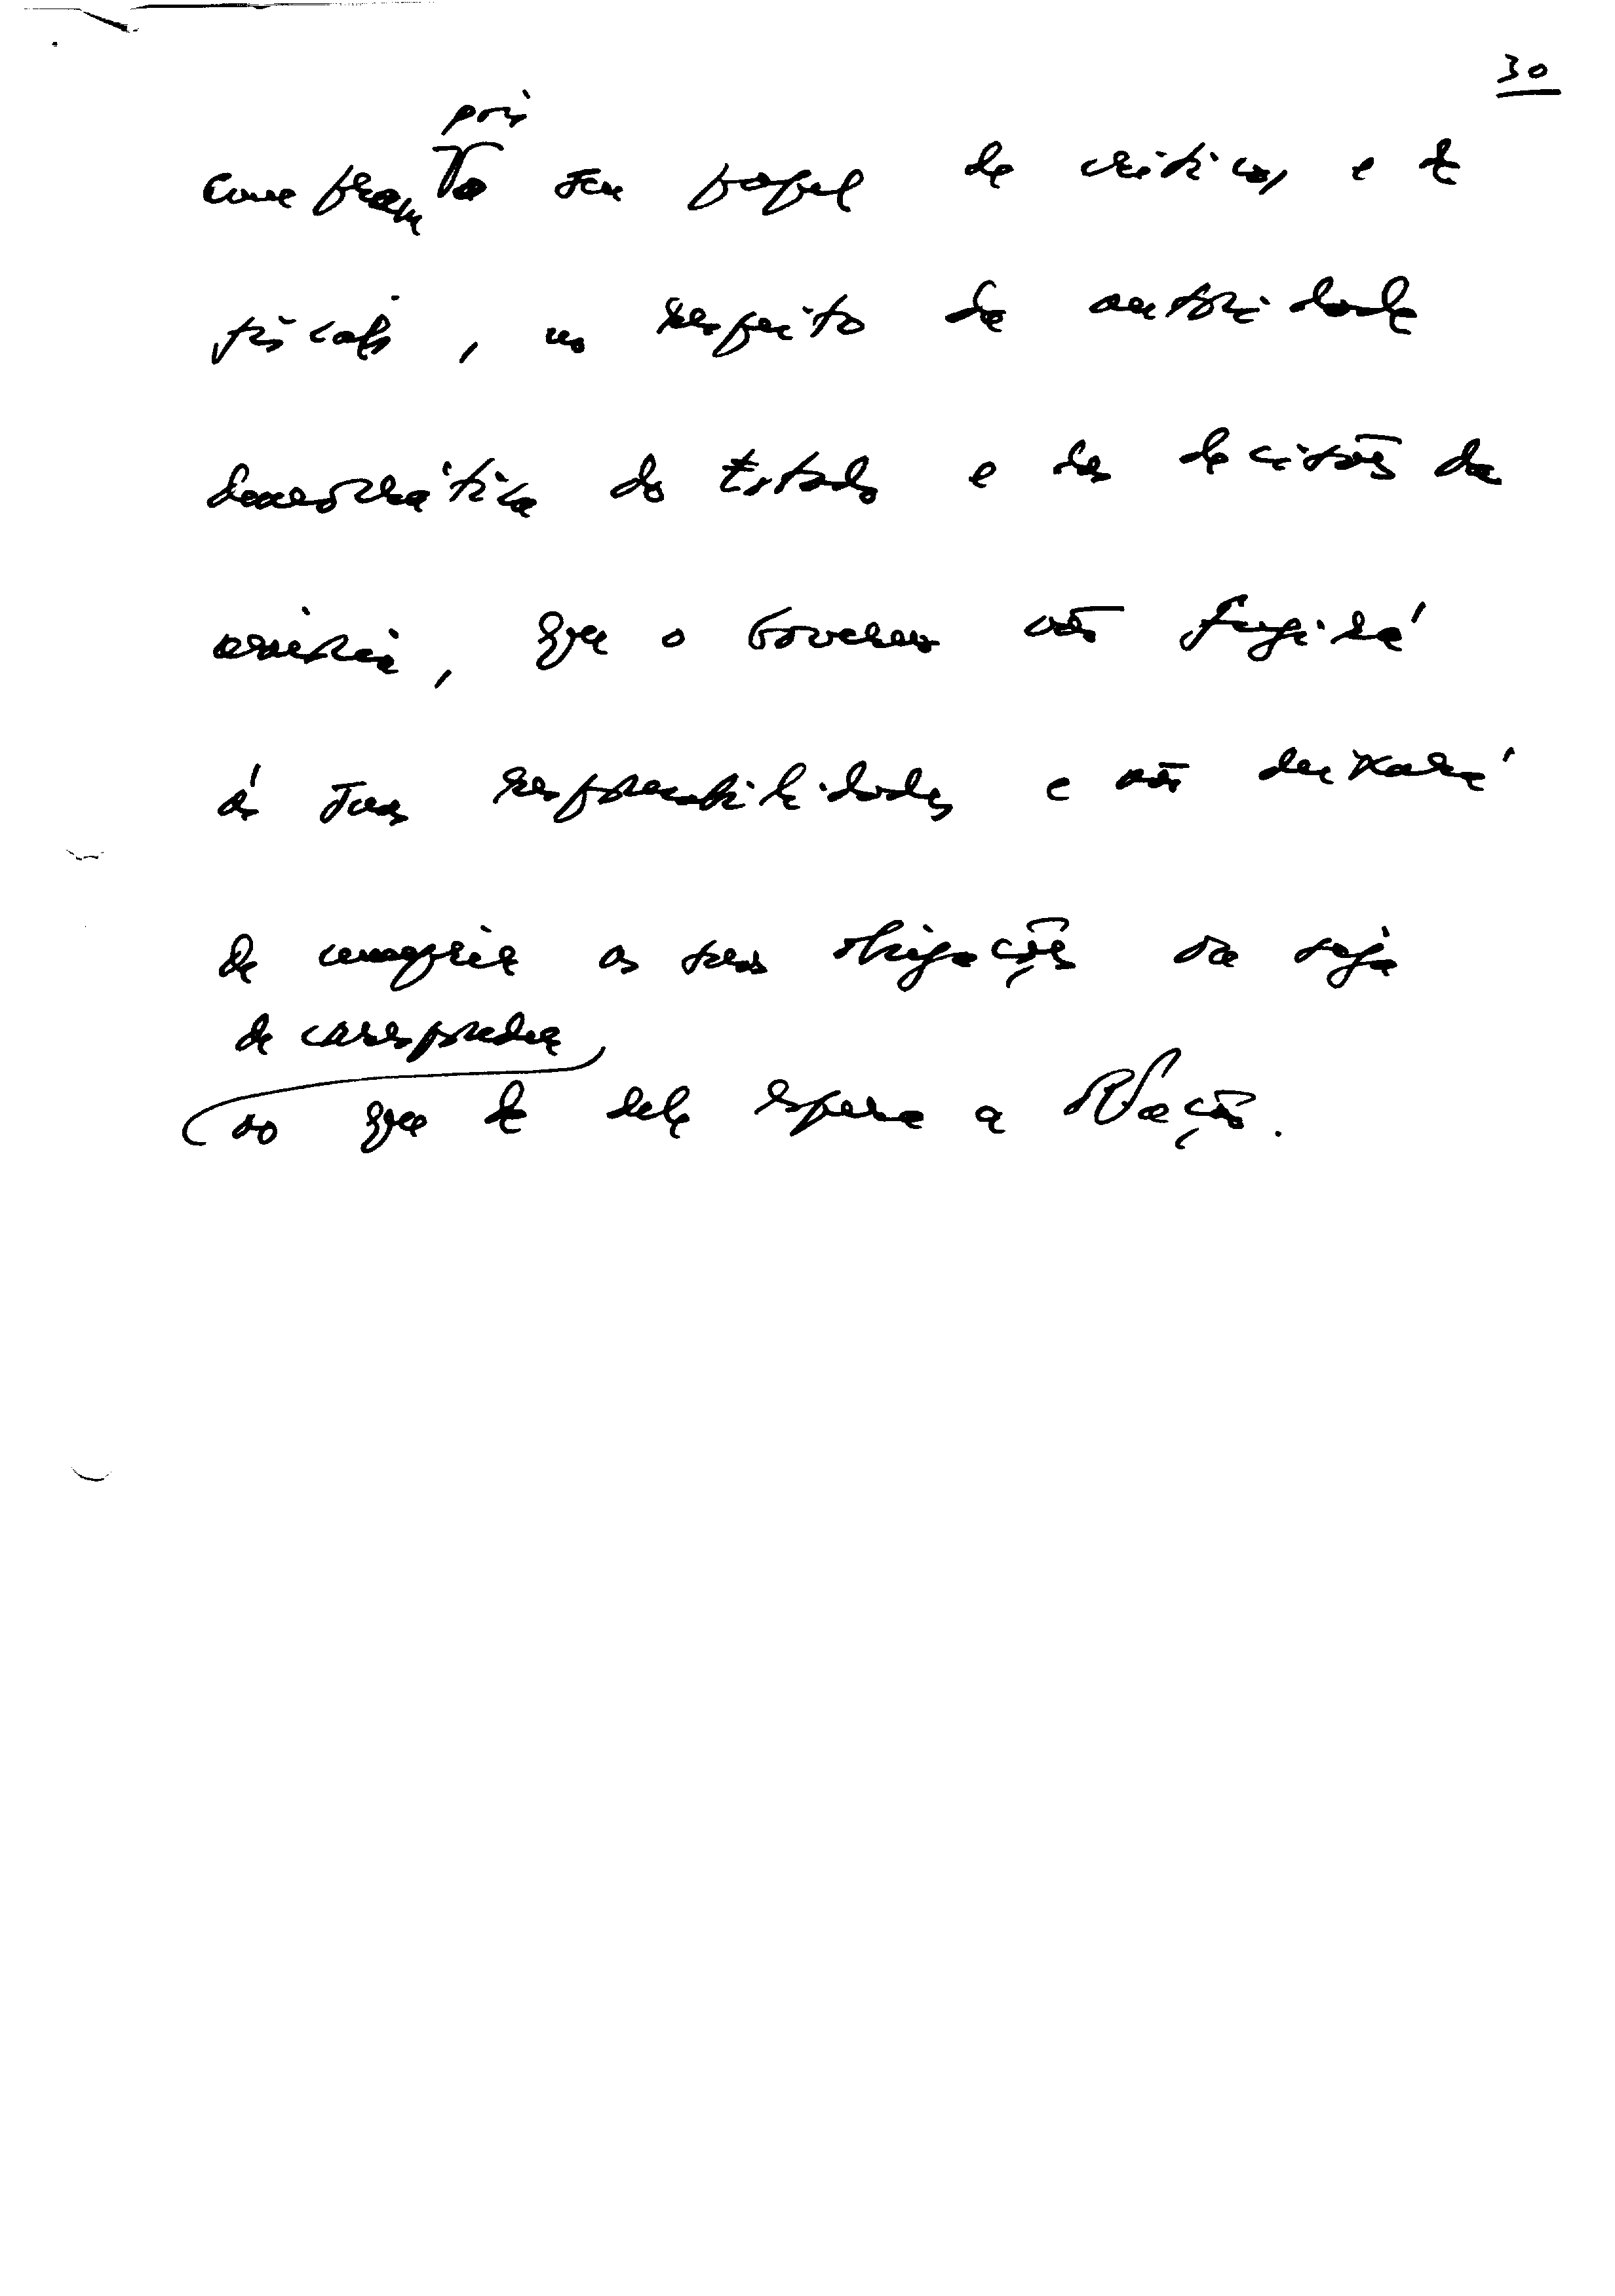 30
pois
cumpram o seu papel de críticos, e de
fiscais, no respeito da autoridade
democrática do Estado e das decisões da
maioria, que o Governo não fugirá
às suas responsabilidades e não deixará
de cumprir as suas obrigações ou seja
de corresponder
ao que dele espera a Nação.